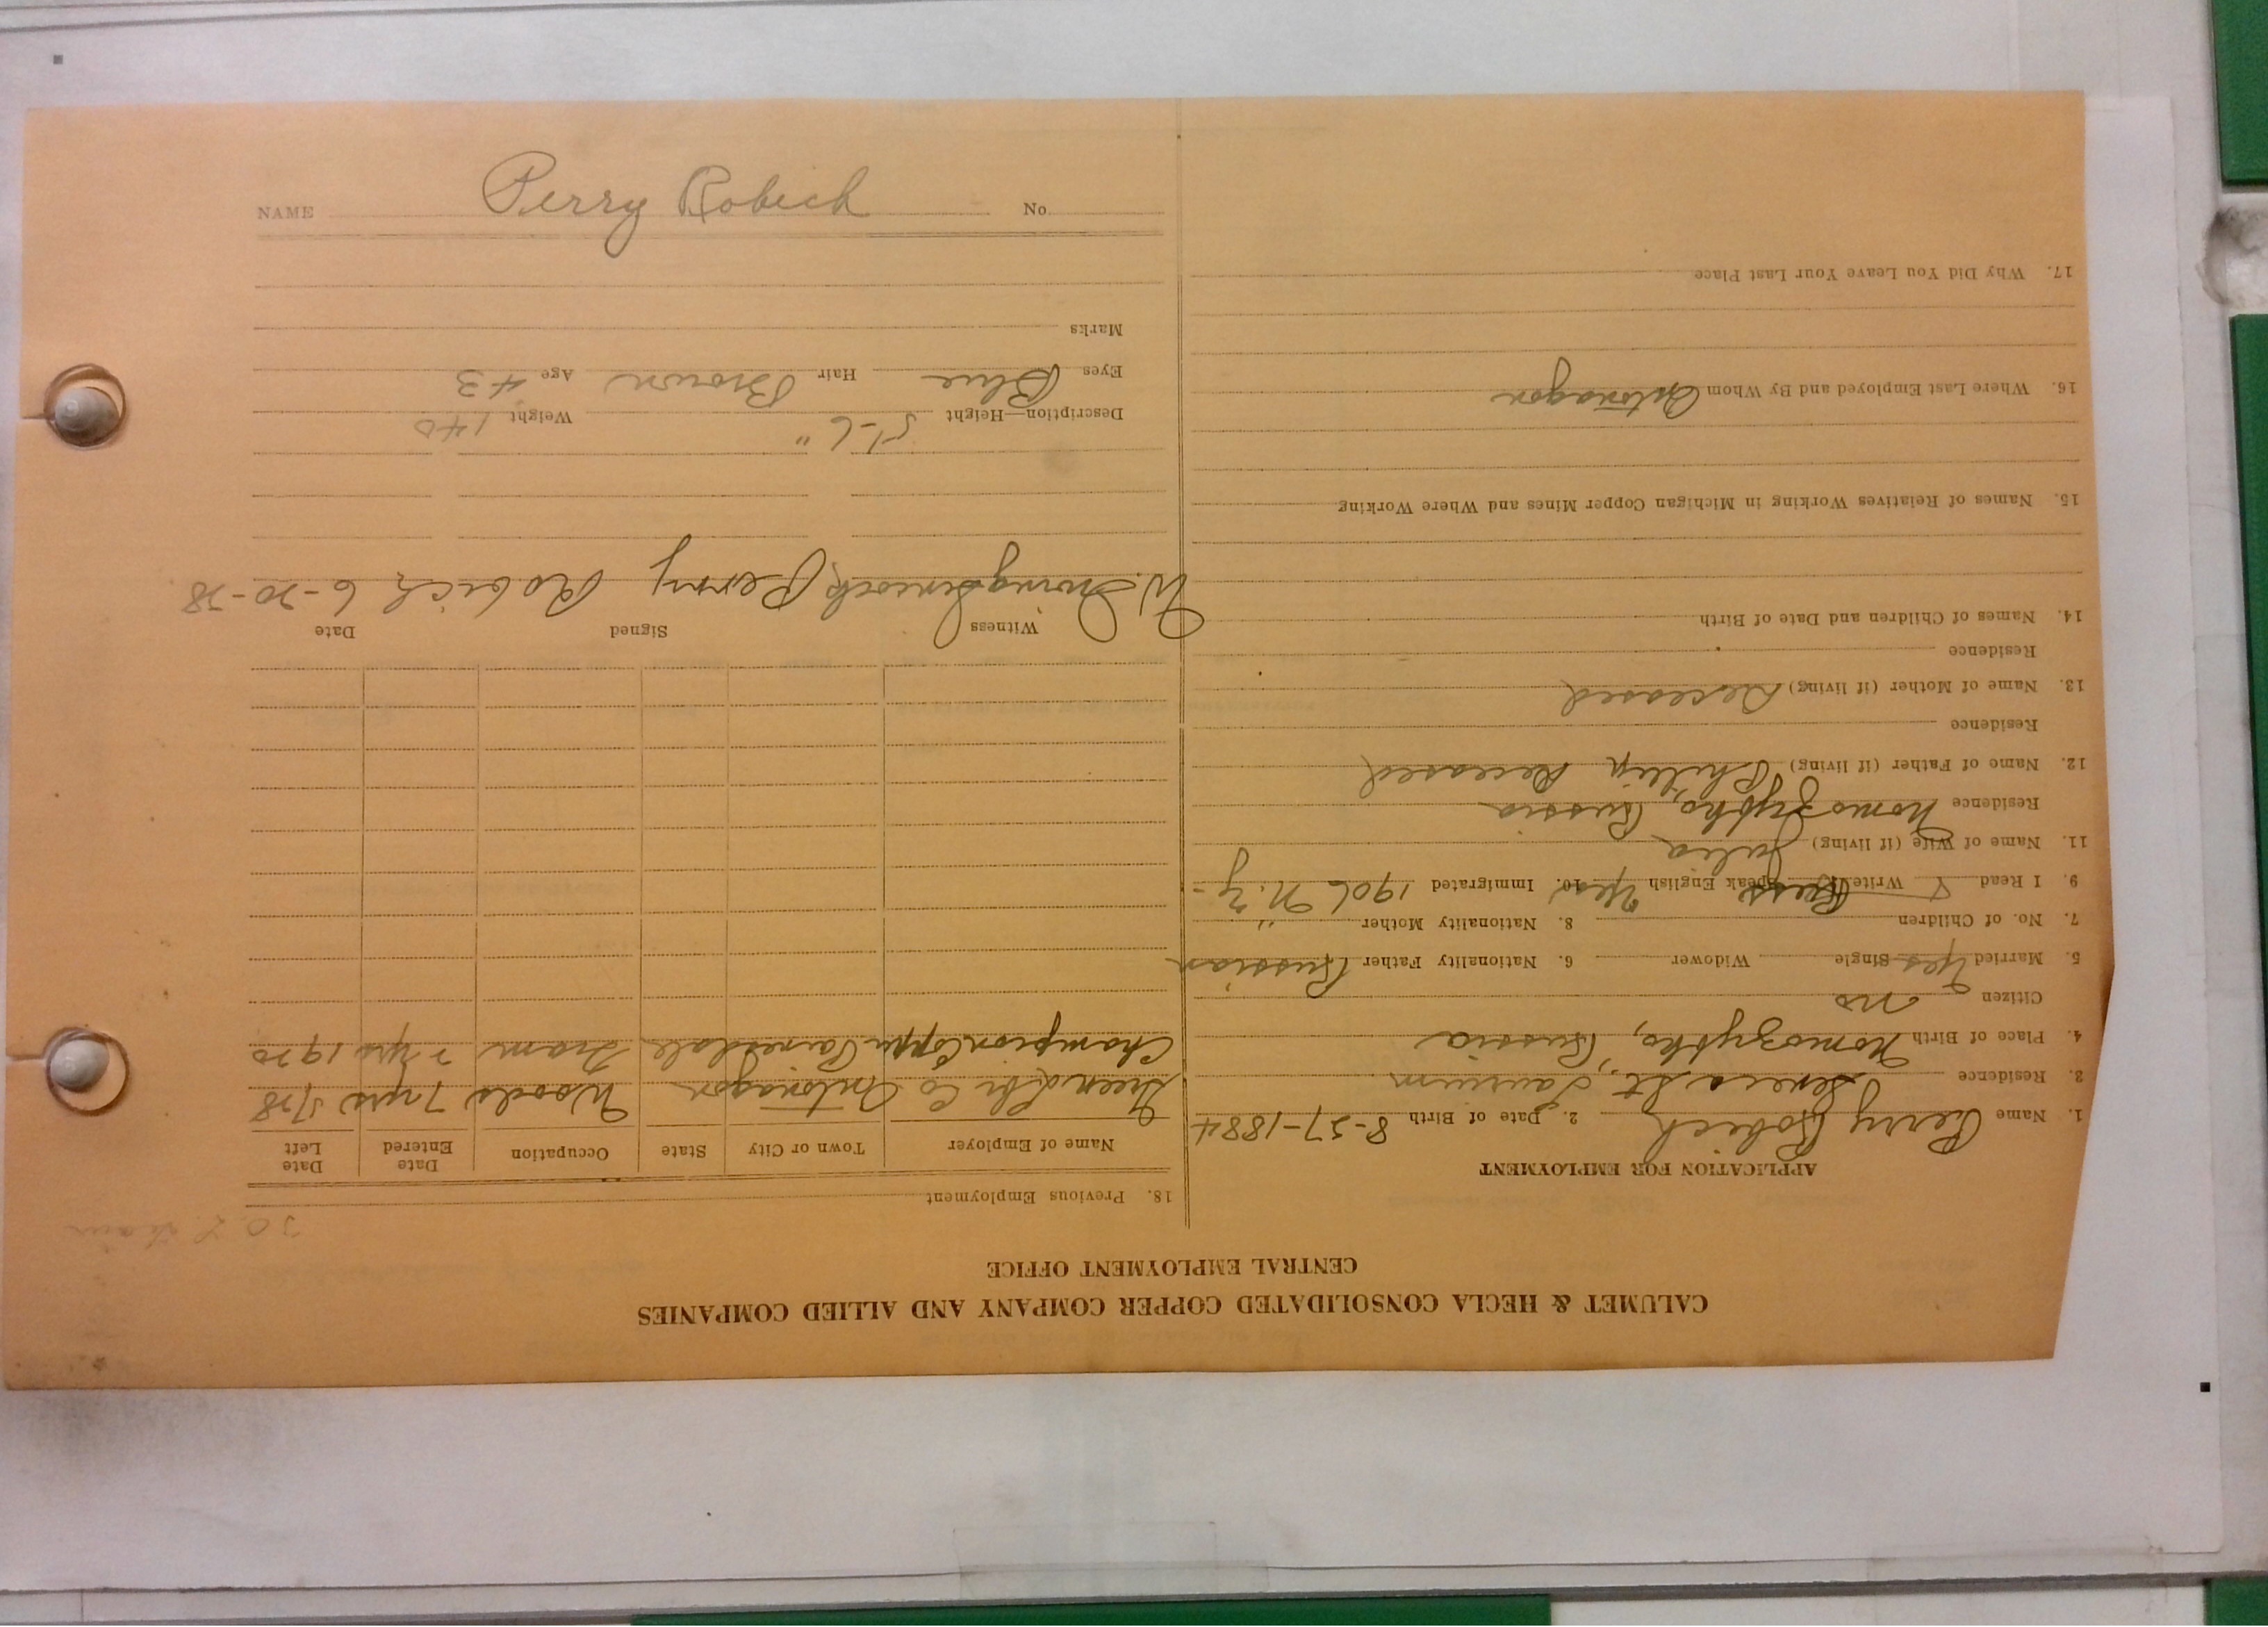 CALUMET & HECLA CONSOLIDATED COPPER COMPANY AND ALLIED COMPANIES
CENTRAL EMPLOYMENT OFFICE
APPLICATION FOR EMPLOYMENT
1. Name Perry Robich 2. Date of Birth 8-27-1884
3. Residence Seneca St, Laurium
4. Place of Birth Russia
Citizen no
5. Married Yes Single Widower 6. Nationality Father Russian
7. No. of Children 8. Nationality Mother "
9. I Read Write Speak English Yes 10. Immigrated 1906 N.Y-
11. Name of Wife (if living) Julia
Residence Russia
12. Name of Father (if living) Phillip Deceased
Residence
13. Name of Mother (if living) Deceased
Residence
14. Names of Children and Date of Birth
15. Names of Relatives Working in Michigan Copper Mines and Where Working
16. Where Last Employed and By Whom Ontonagon
17. Why Did You Leave Your Last Place
18. Previous Employment
Name of Employer Town or City State Occupation Date Entered Date Left
Co Ontonagon Woods 7 yrs 5/28
Champion Copper Painesdale Tram 7 yrs 1920
Witness Signed Date
W. Perry Robich 6-20-28
Description—Height 5'-6" Weight 140
Eyes Blue Hair Brown Age 43
Marks
NAME Perry Robich No.